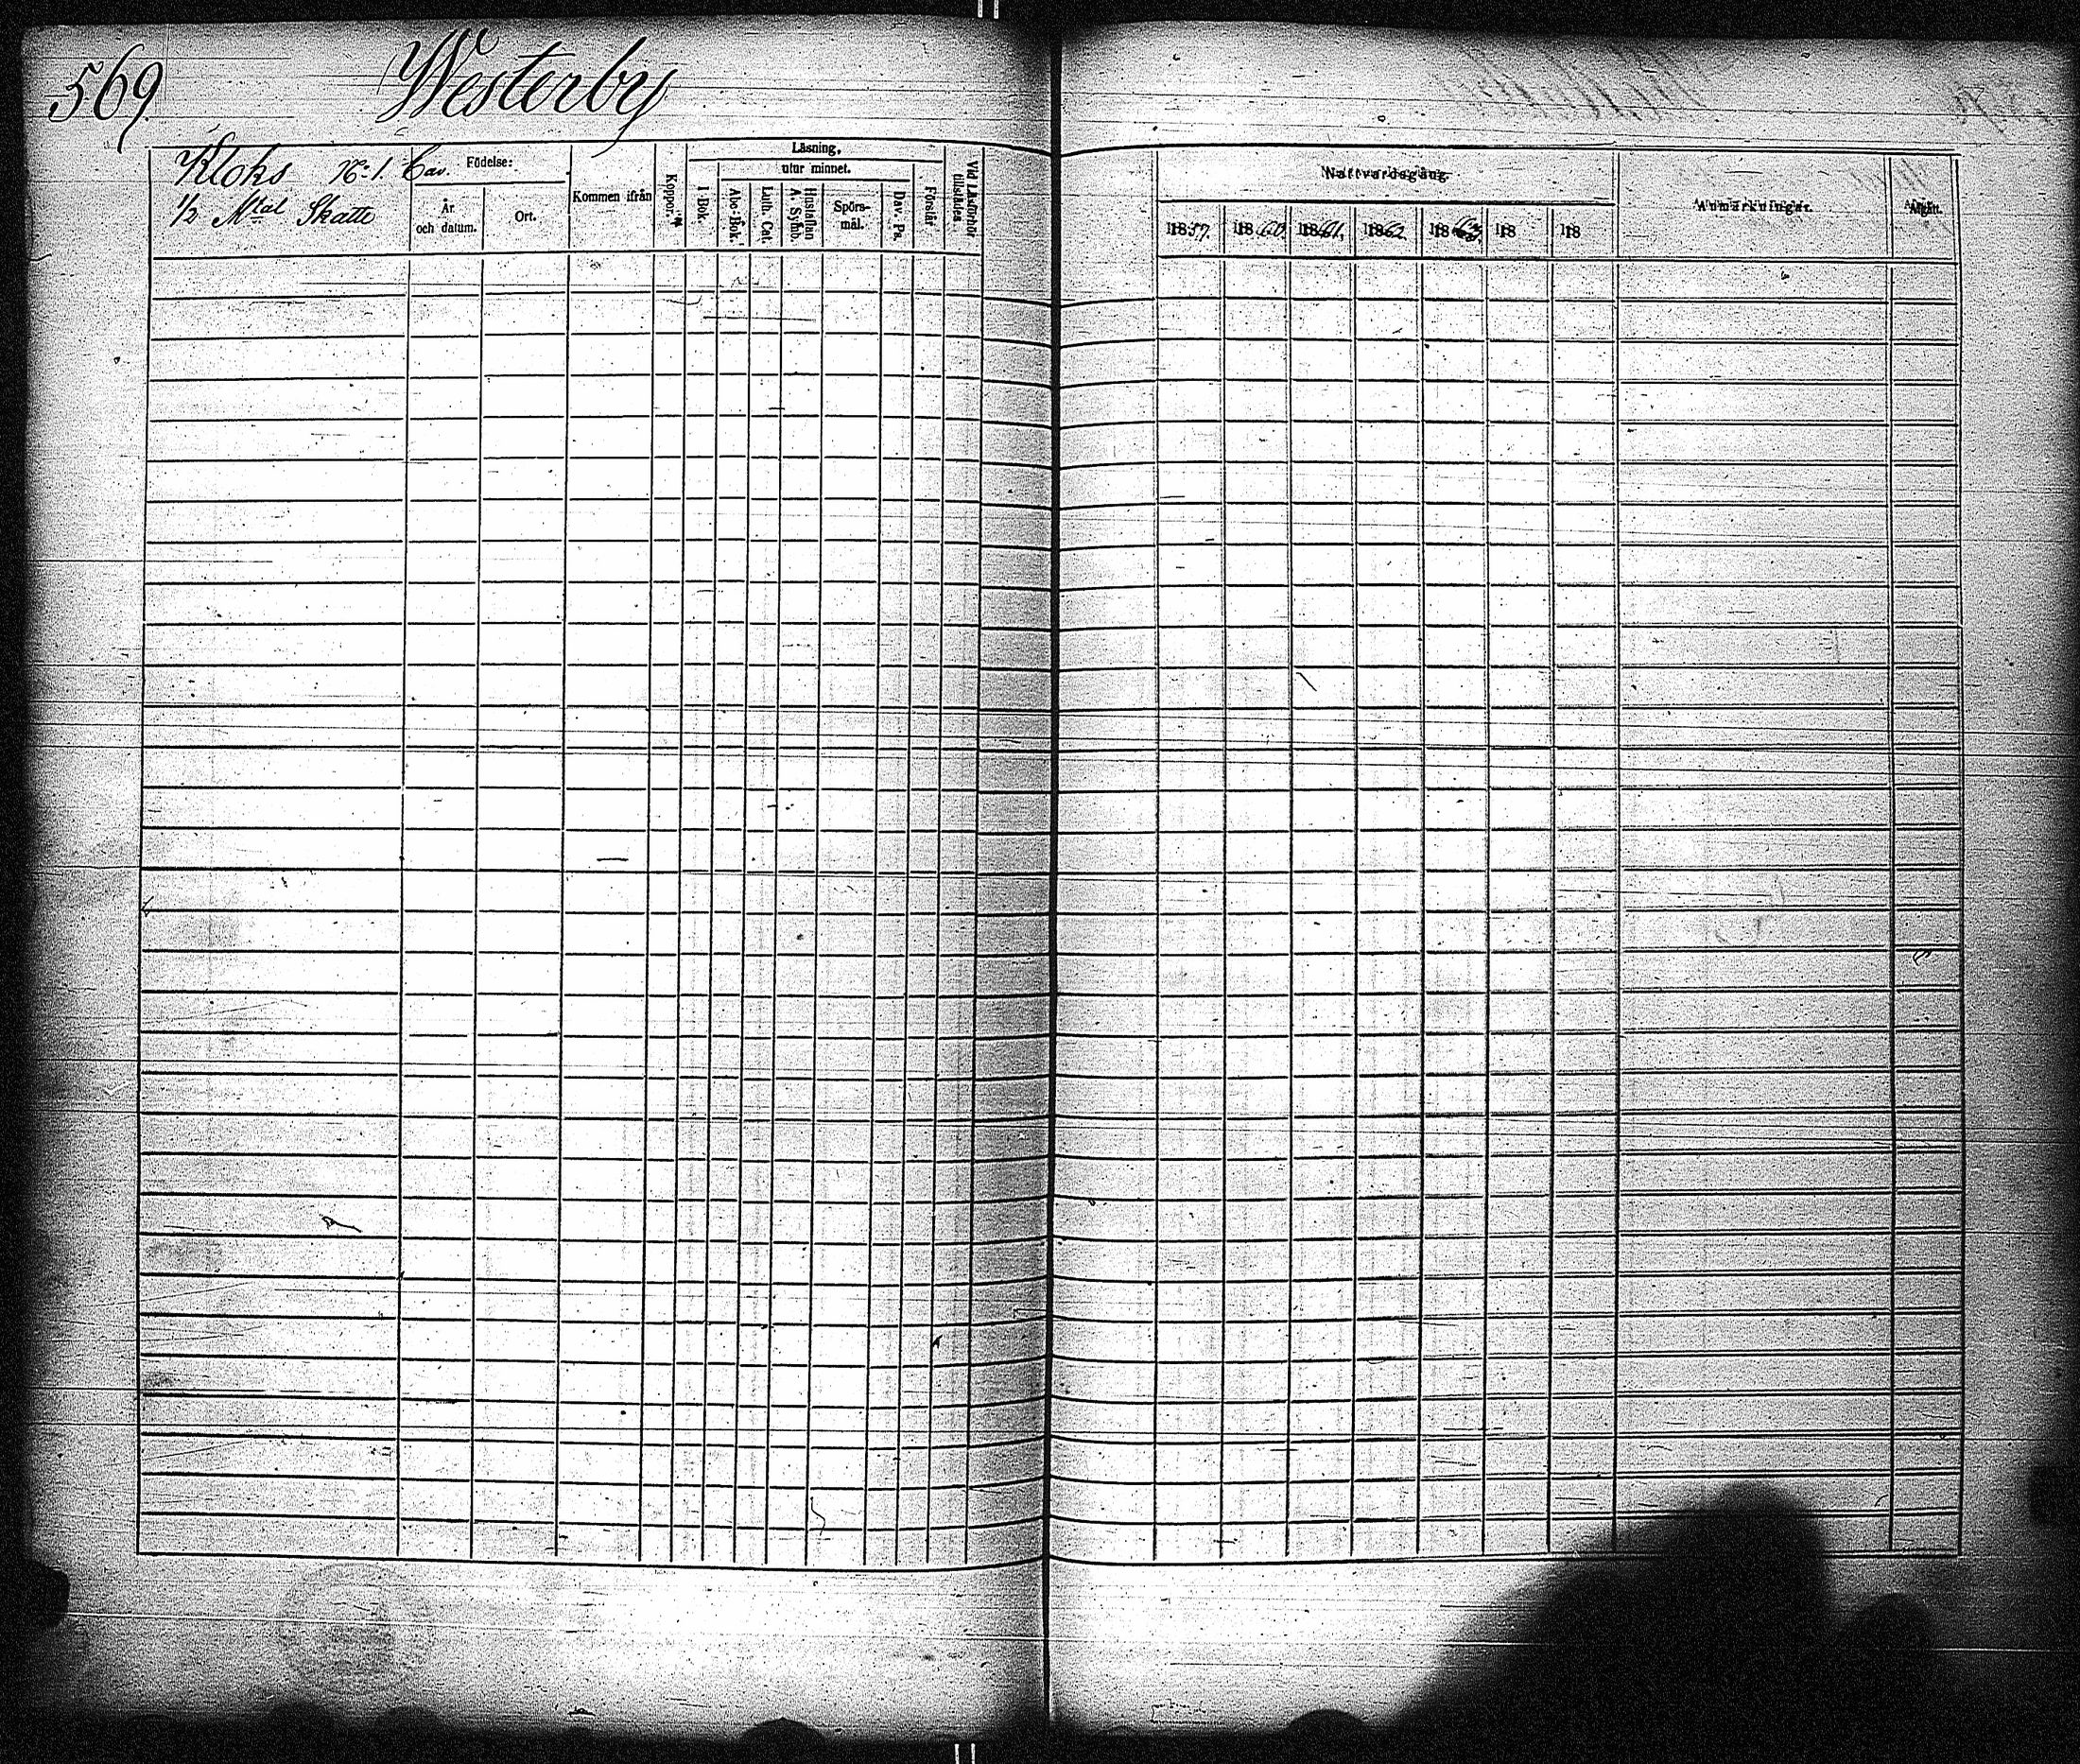 569.
Westerby
Kloks No 1. Cav.
1/2 Mtal Skatte
Födelse:
År och datum.
Ort.
Kommen ifrån
Koppor.
Läsning,
I Bok.
utur minnet.
Abc Bok.
Luth. Cat.
Hustaflan A. Symb.
Spörs-
mål.
Dav. Ps.
Förstår
Vid Läsförhör tillstädes.
Nattvardsgång.
18
1860.
1861,
1862.
1863,
18
18
Anmärkningar.
Afgått.